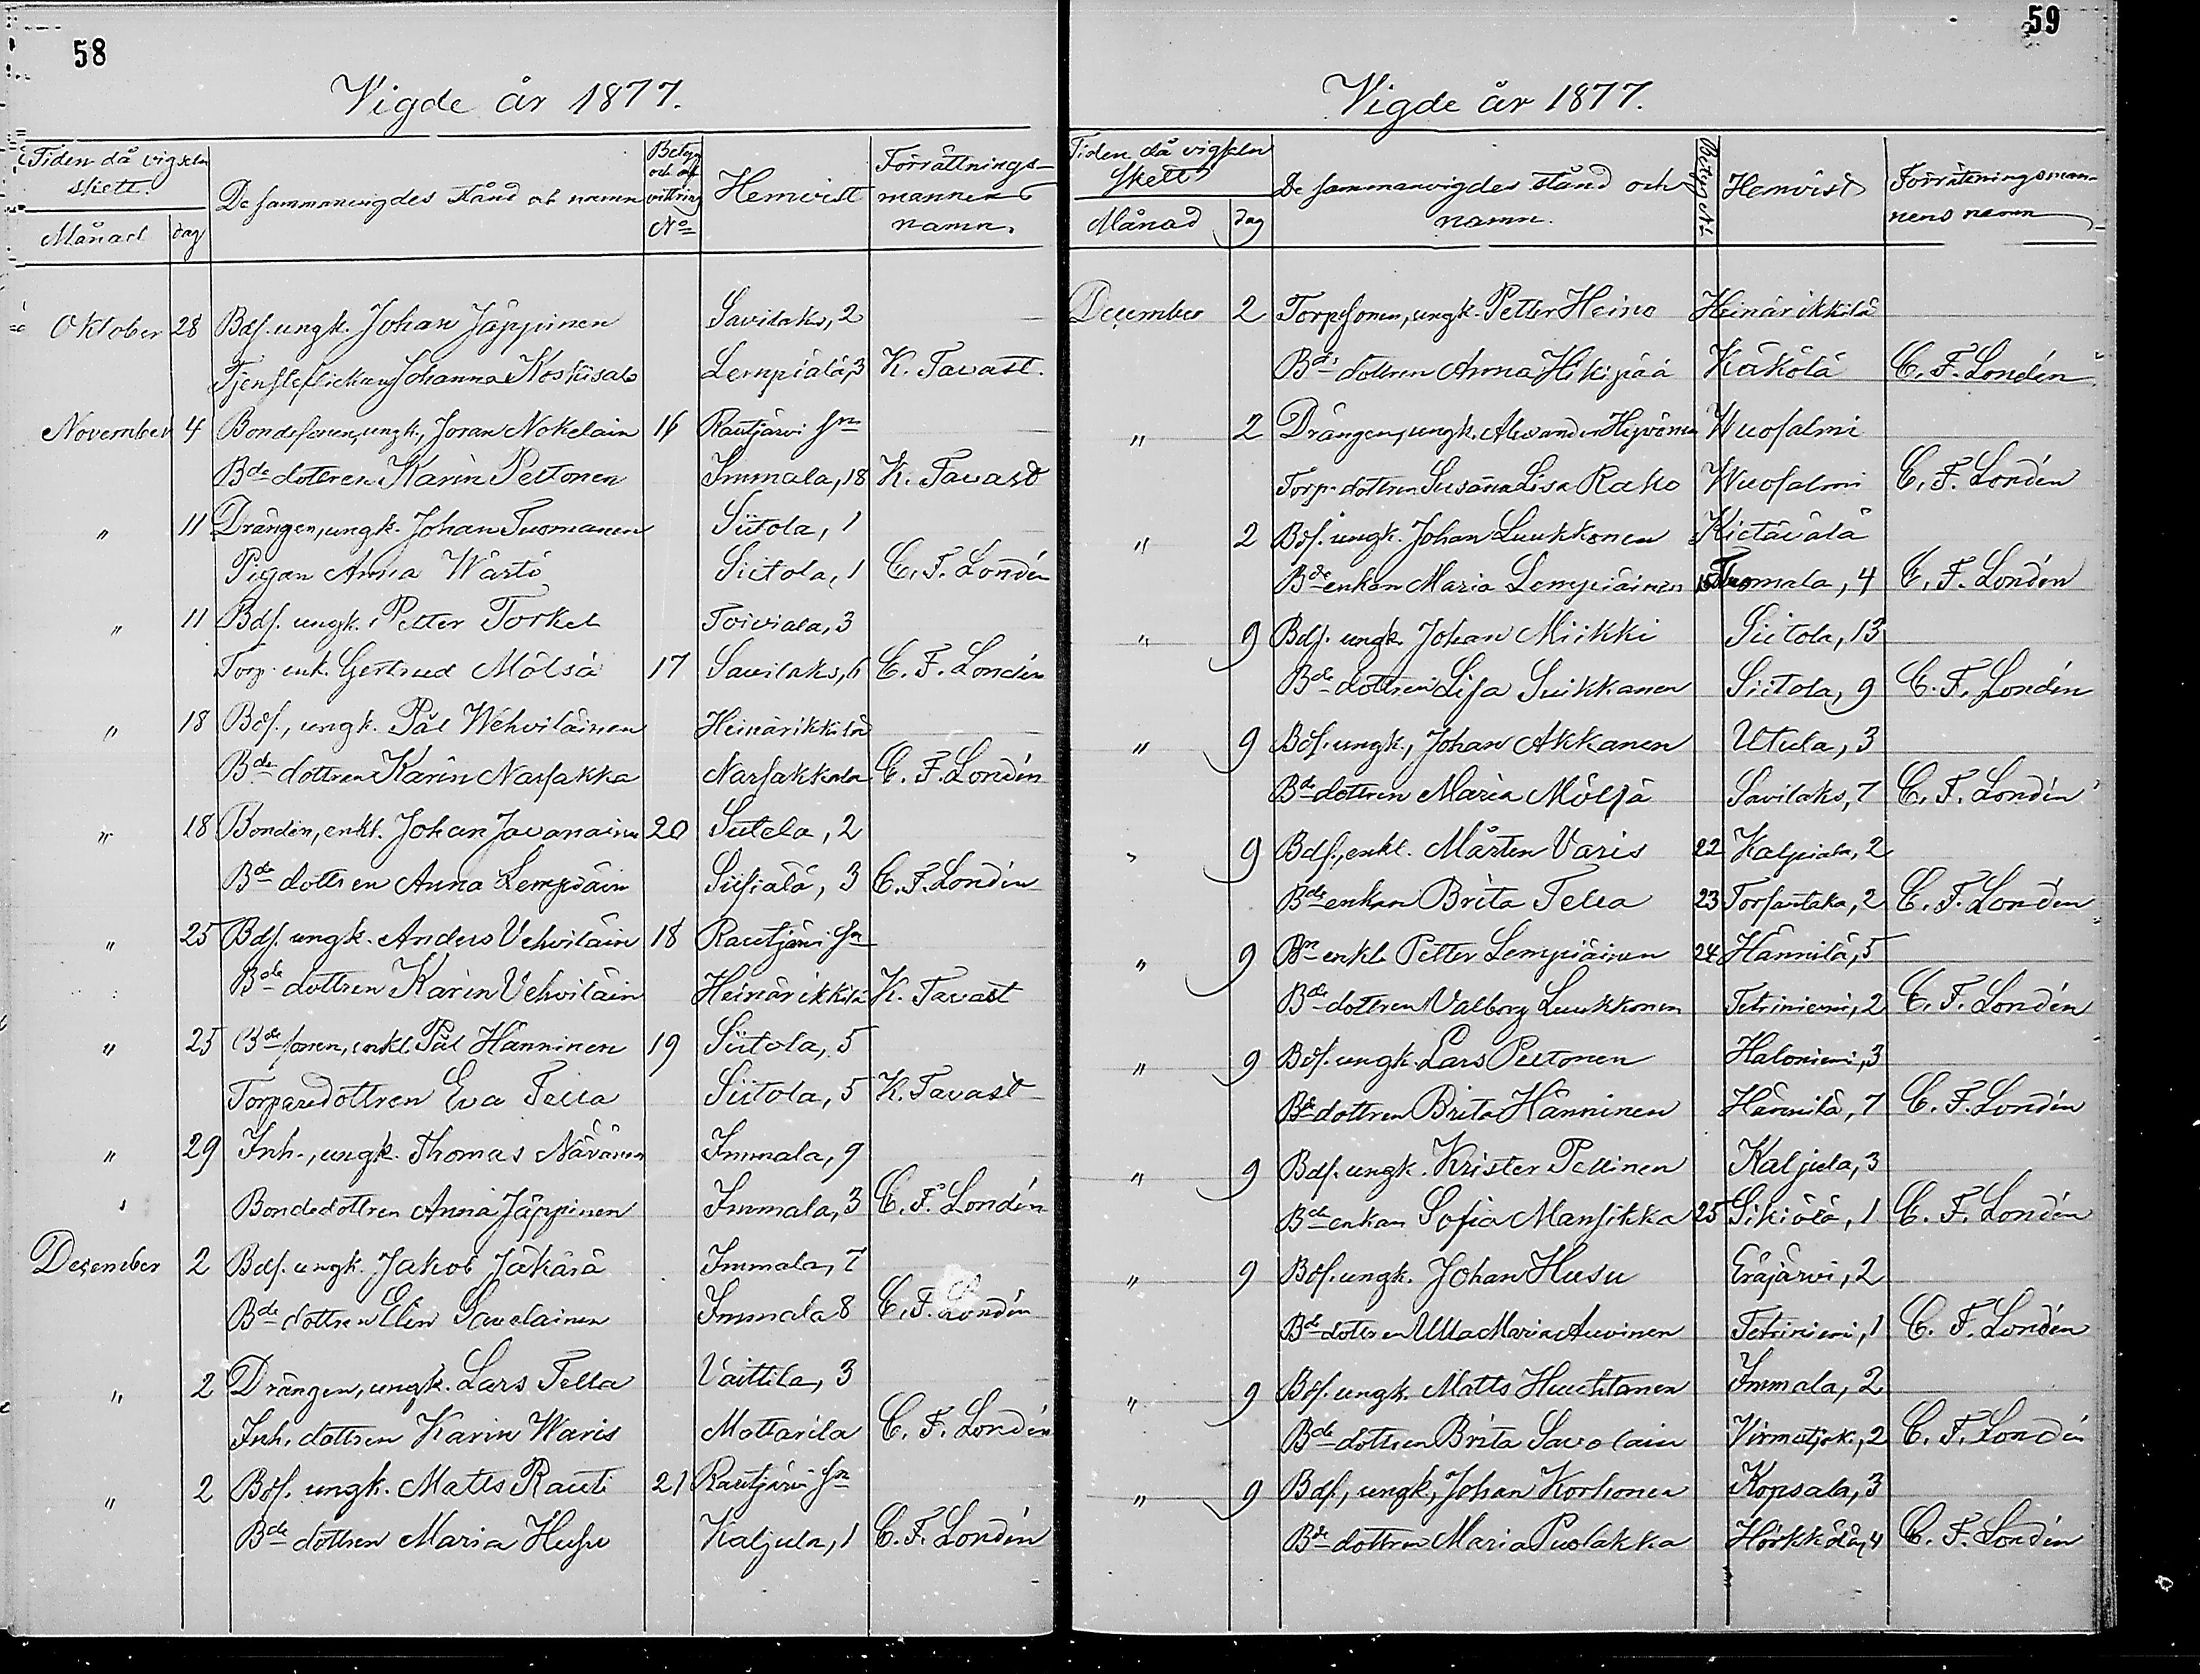 58
Vigde år 1877.
Tiden då vigseln skett.
Månad dag
De sammanvigdes stånd och namn
Betyg och
No
Hemvist
Förrättnings-
mannens
namn.
Oktober 28 Bdf. ungk. Johan Jäppinen Savilaks, 2
Tjensteflickan Johanna Koskisalo Lempiälä, 3 K. Tavast.
November 4 Bondesonen, ungk., Joran Nokelain 16 Rautjärvi sn
Bde dottren Karin Peltonen Immala, 18 K. Tavast
" 11 Drängen, ungk. Johan Tuomanen Siitola, 1
Pigan Anna Wärtö Siitola, 1 C. F. Londén
" 11 Bdf. ungk. Petter Torkel Toiviala, 3
Torp. enk. Gertrud Mölsä 17 Savilaks, 6 C. F. Londén
" 18 Bdf., ungk. Pål Wehviläinen Heinärikkilä
Bde dottren Karin Narsakka Narsakkala C. F. Londén
" 18 Bonden, enkl. Johan Javanainen 20 Sutela, 2
Bde dottren Anna Lempiäin Siisiälä, 3 C. F. Londén
" 25 Bdf. ungk. Anders Vehviläin 18 Rautjärvi sn
Bde dottren Karin Vehviläin Heinärikkilä K. Tavast
" 25 Bde sonen, enkl. Pål Hänninen 19 Siitola, 5
Torparedottren Eva Tella Siitola, 5 K. Tavast
" 29 Inh., ungk. Thomas Nävänen Immala, 9
Bondedottren Anna Jäppinen Immala, 3 C. F. Londén
December 2 Bdf. ungk. Jakob Jäkärä Immala, 7
Bde dottren Elin Savolainen Immala 8 C. F. Londén
" 2 Drängen, ungk. Lars Tella Vaittila, 3
Inh. dottren Karin Waris Mattarila C. F. Londén
" 2 Bdf. ungk. Matts Rauti 21 Rautjärvi sn
Bde dottren Maria Husu Kaljula, 1 C. F. Londén
59
Vigde år 1877.
Tiden då vigseln
skett
Månad dag
De sammanvigdes stånd och
namn.
Betyg No
Hemvist
Förrättningsman-
nens namn
December 2 Torpsonen, ungk. Petter Heino Heinärikkilä
Bde dottren Anna Hikipää Käkölä C. F. Londén
" 2 Drängen, ungk. Alexander Hyvönen Wuosalmi
Torp. dottren Susanna Lisa Rako Wuosalmi C. F. Londén
" 2 Bdf. ungk. Johan Luukkonen Kietävälä
Bde enkan Maria Lempiäinen 15 Tuomala, 4 C. F. Londén
" 9 Bdf. ungk. Johan Miikki Siitola, 13
Bde dottren Lisa Suikkanen Siitola, 9 C. F. Londén
" 9 Bdf. ungk., Johan Akkanen Utula, 3
Bde dottren Maria Mölsä Savilaks, 7 C. F. Londén
" 9 Bdf., enkl. Mårten Varis 22 Kalpiala, 2
Bde enkan Brita Tella 23 Torsantaka, 2 C. F. Londén
" 9 Bn enkl. Petter Lempiäinen 24 Hännilä, 5
Bde dottren Valborg Luukkonen Tetriniemi, 2 C. F. Londén
" 9 Bdf. ungk. Lars Peltonen Haloniemi, 3
Bde dottren Brita Hänninen Hännilä, 7 C. F. Londén
" 9 Bdf. ungk. Krister Pellinen Kaljula, 3
Bde enkan Sofia Mansikka 25 Sikiölä, 1 C. F. Londén
" 9 Bdf. ungk. Johan Husu Eräjärvi, 2
Bde dottren Ulla Maria Auvinen Tetriniemi, 1 C. F. Londén
" 9 Bdf. ungk. Matts Huuhtanen Immala, 2
Bde dottren Brita Savolain Virmutjok., 2 C. F. Londén
" 9 Bdf., ungk., Johan Korhonen Kopsala, 3
Bde dottren Maria Puolakka Härskiälä, 4 C. F. Londén